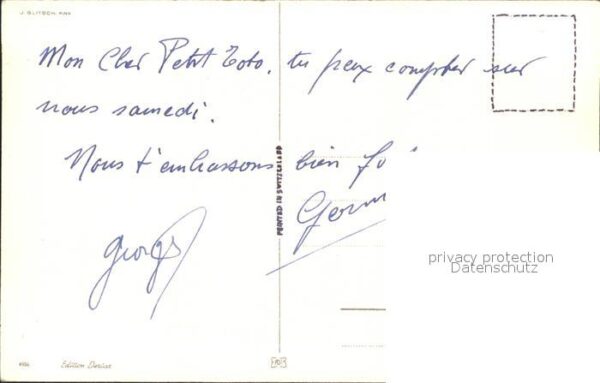 J. GLITSCH
Mon Cher Petit Toto, tu peux compter sur
nous samedi.
Nous t'embrassons bien fo
Germ
georges
PRINTED IN SWITZERLAND
privacy protection
Datenschutz
Edition